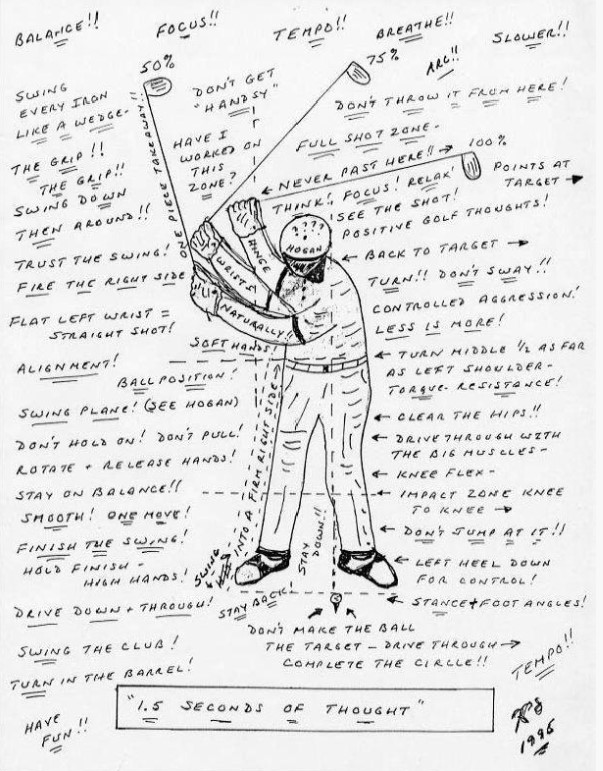 BALANCE!!
FOCUS!!
TEMPO!!
BREATHE!!
SLOWER!!
50%
75%
ARC!!
SWING
EVERY IRON
LIKE A WEDGE-
DON'T GET
"HANDSY"
DON'T THROW IT FROM HERE!
THE GRIP!!
THE GRIP!!
HAVE I
WORKED ON
THIS
ZONE?
FULL SHOT ZONE-
100%
NEVER PAST HERE!!
POINTS AT
TARGET
SWING DOWN
THEN AROUND!!
ONE PIECE TAKEAWAY!!
THINK! FOCUS! RELAX!
SEE THE SHOT!
POSITIVE GOLF THOUGHTS!
? ? ?
HOGAN
TRUST THE SWING!
FIRE THE RIGHT SIDE
HINGE
WRISTS
NATURALLY!!
BACK TO TARGET
TURN!! DON'T SWAY!!
CONTROLLED AGGRESSION!
LESS IS MORE!
FLAT LEFT WRIST =
STRAIGHT SHOT!
SOFT HANDS
ALIGNMENT!
BALL POSITION!
TURN MIDDLE 1/2 AS FAR
AS LEFT SHOULDER-
TORQUE-RESISTANCE!
SWING PLANE! (SEE HOGAN)
CLEAR THE HIPS!!
DON'T HOLD ON! DON'T PULL!
ROTATE + RELEASE HANDS!
DRIVE THROUGH WITH
THE BIG MUSCLES-
KNEE FLEX-
STAY ON BALANCE!!
IMPACT ZONE KNEE
TO KNEE
SMOOTH! ONE MOVE!
FINISH THE SWING!
HOLD FINISH -
HIGH HANDS!
SWING
INTO A FIRM RIGHT SIDE
STAY DOWN!!
DON'T JUMP AT IT!!
LEFT HEEL DOWN
FOR CONTROL!
DRIVE DOWN + THROUGH!
STAY BACK
STANCE + FOOT ANGLES!
DON'T MAKE THE BALL
THE TARGET - DRIVE THROUGH
COMPLETE THE CIRCLE!!
SWING THE CLUB!
TURN IN THE BARREL!
TEMPO!!
HAVE
FUN!!
"1.5 SECONDS OF THOUGHT"
1995